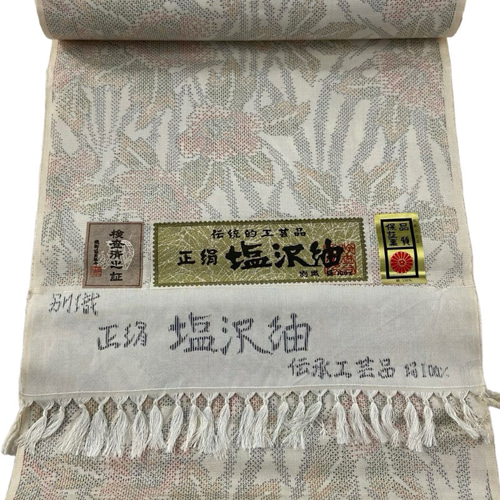 検査済之証
伝統的工芸品
正絹 塩沢紬
別織
品質
保証票
別織
正絹 塩沢紬
伝承工芸品 絹100%